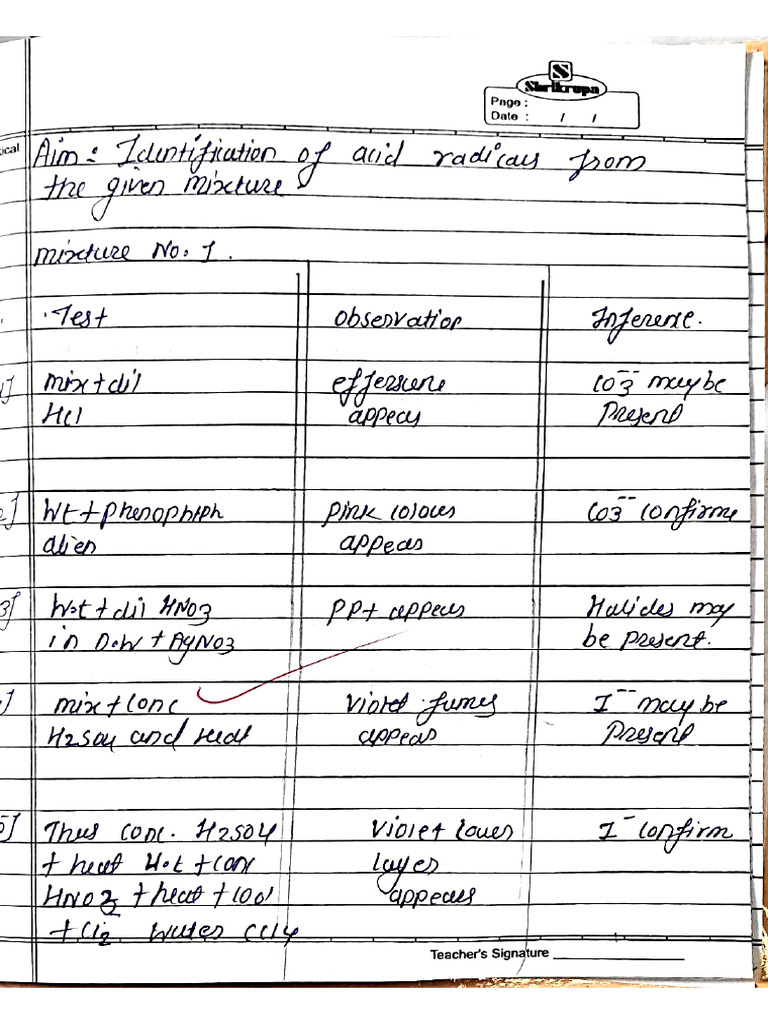 S
Shrikrupa
Page :
Date : / /
ical
Aim : Identification of acid radicals from
the given mixture
mixture No. 1.
Test Observation Inference.
1] mix + dil effersure CO3-- may be
HCl appears Present
2] Wt + phenophtph pink colour CO3-- confirm
alien appears
3] W.t + dil HNO3 PPt appears Halides may
in D.W + AgNO3 be present.
] mix + conc Violet fumes I-- may be
H2SO4 and heat appears Present
5] Thus conc. H2SO4 Violet lower I- confirm
+ heat H.t + conc layer
HNO3 + heat + cool appears
+ Cl2 water CCl4
Teacher's Signature